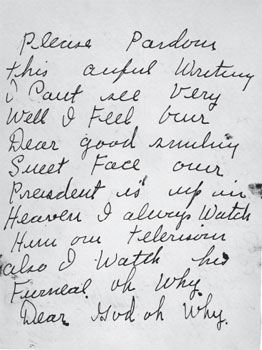 Please Pardon
this awful Writing
I Cant see Very
Well I Feel Our
Dear good smiling
Sweet Face our
President is up in
Heaven I always Watch
Him on Television
also I Watch his
Funeral oh Why
Dear God oh Why.